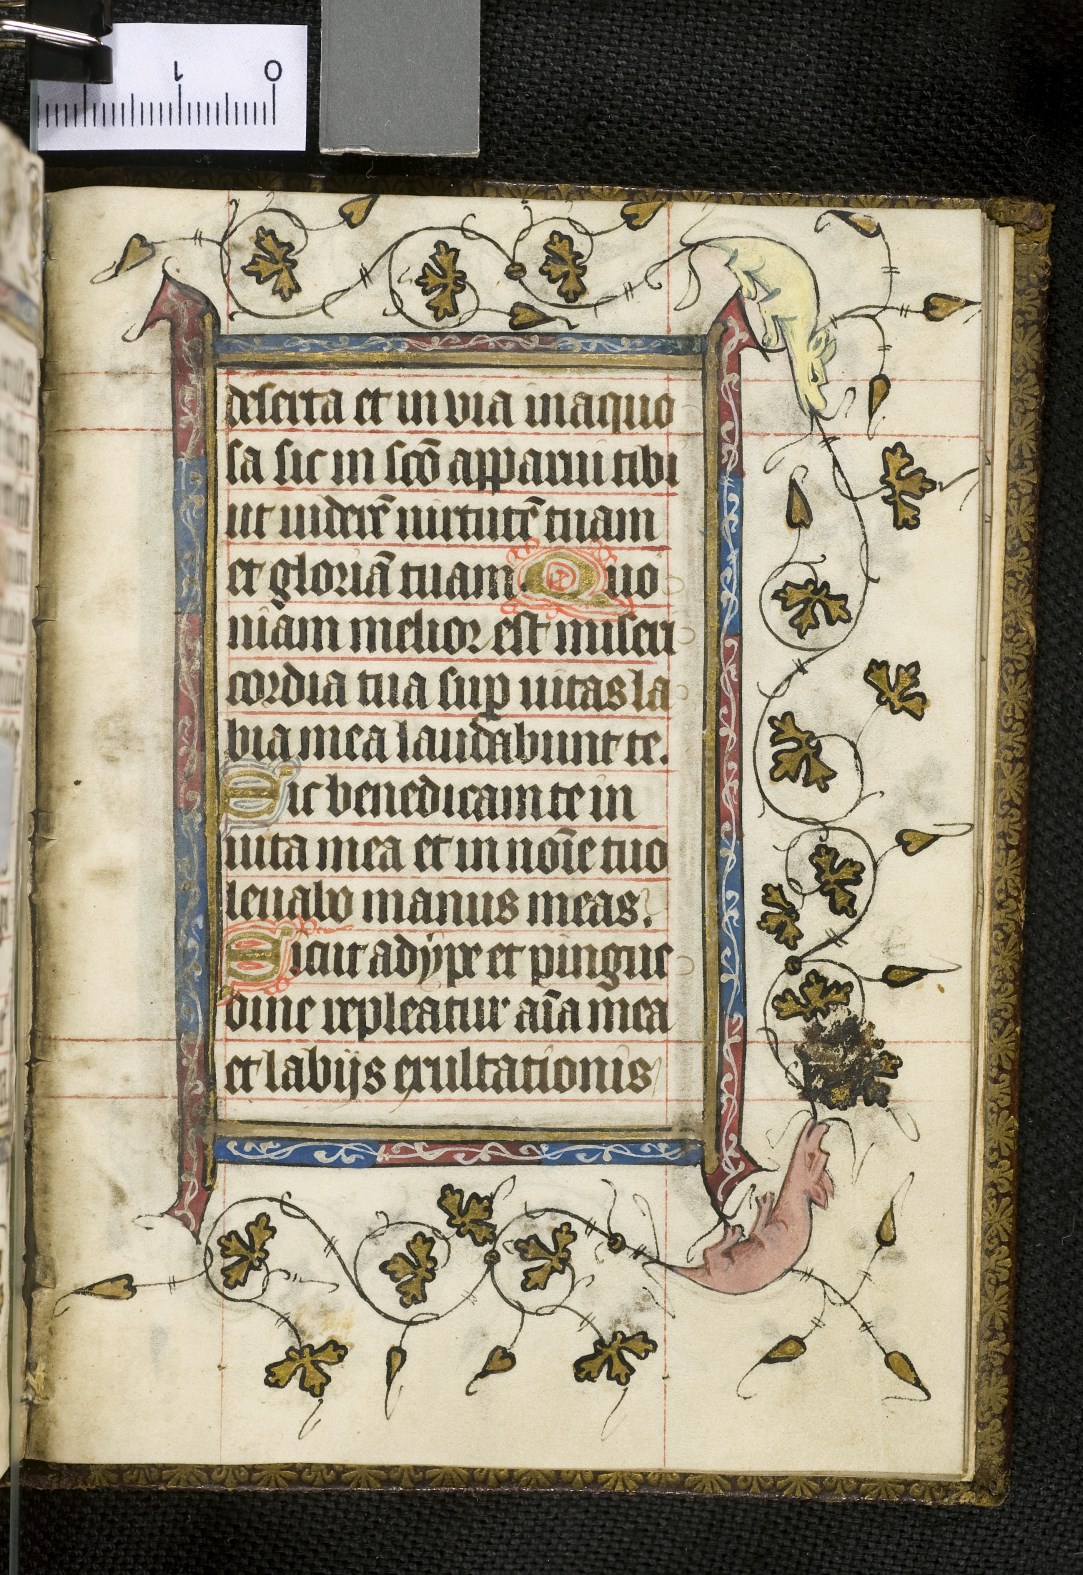 1 0
deserta et in via inaquo
sa sic in scō apparui tibi
ut viderē virtutē tuam
et gloriā tuam. Quo
niam melior est miseri
cordia tua sup vitas la
bia mea laudabunt te.
Sic benedicam te in
vita mea et in noīe tuo
levabo manus meas.
Sicut adype et pingue
dine repleatur aīa mea
et labijs exultationis